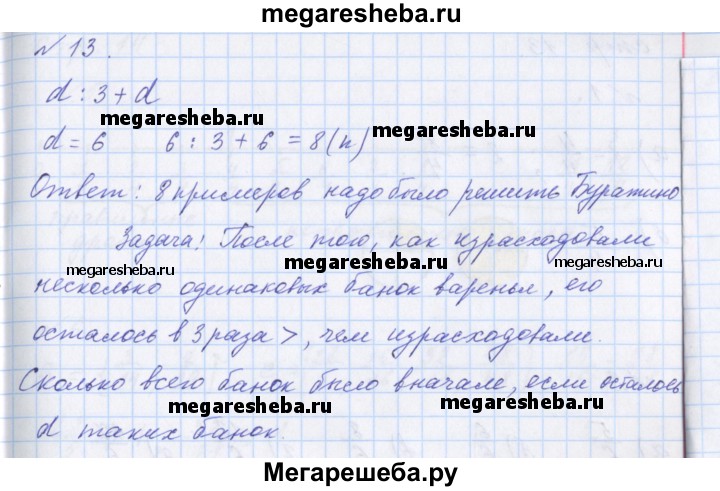 megaresheba.com
№ 13.
d : 3 + d
megaresheba.ru
d = 6 6 : 3 + 6 = 8 (п) megaresheba.ru
Ответ: 8 примеров надо было решить Буратино
Задача! После того, как израсходовали
megaresheba.ru megaresheba.ru megaresheba.ru
несколько одинаковых банок варенья, его
осталось в 3 раза >, чем израсходовали.
Сколько всего банок было вначале, если осталось
megaresheba.ru megaresheba.ru
d таких банок.
Мегарешеба.ру